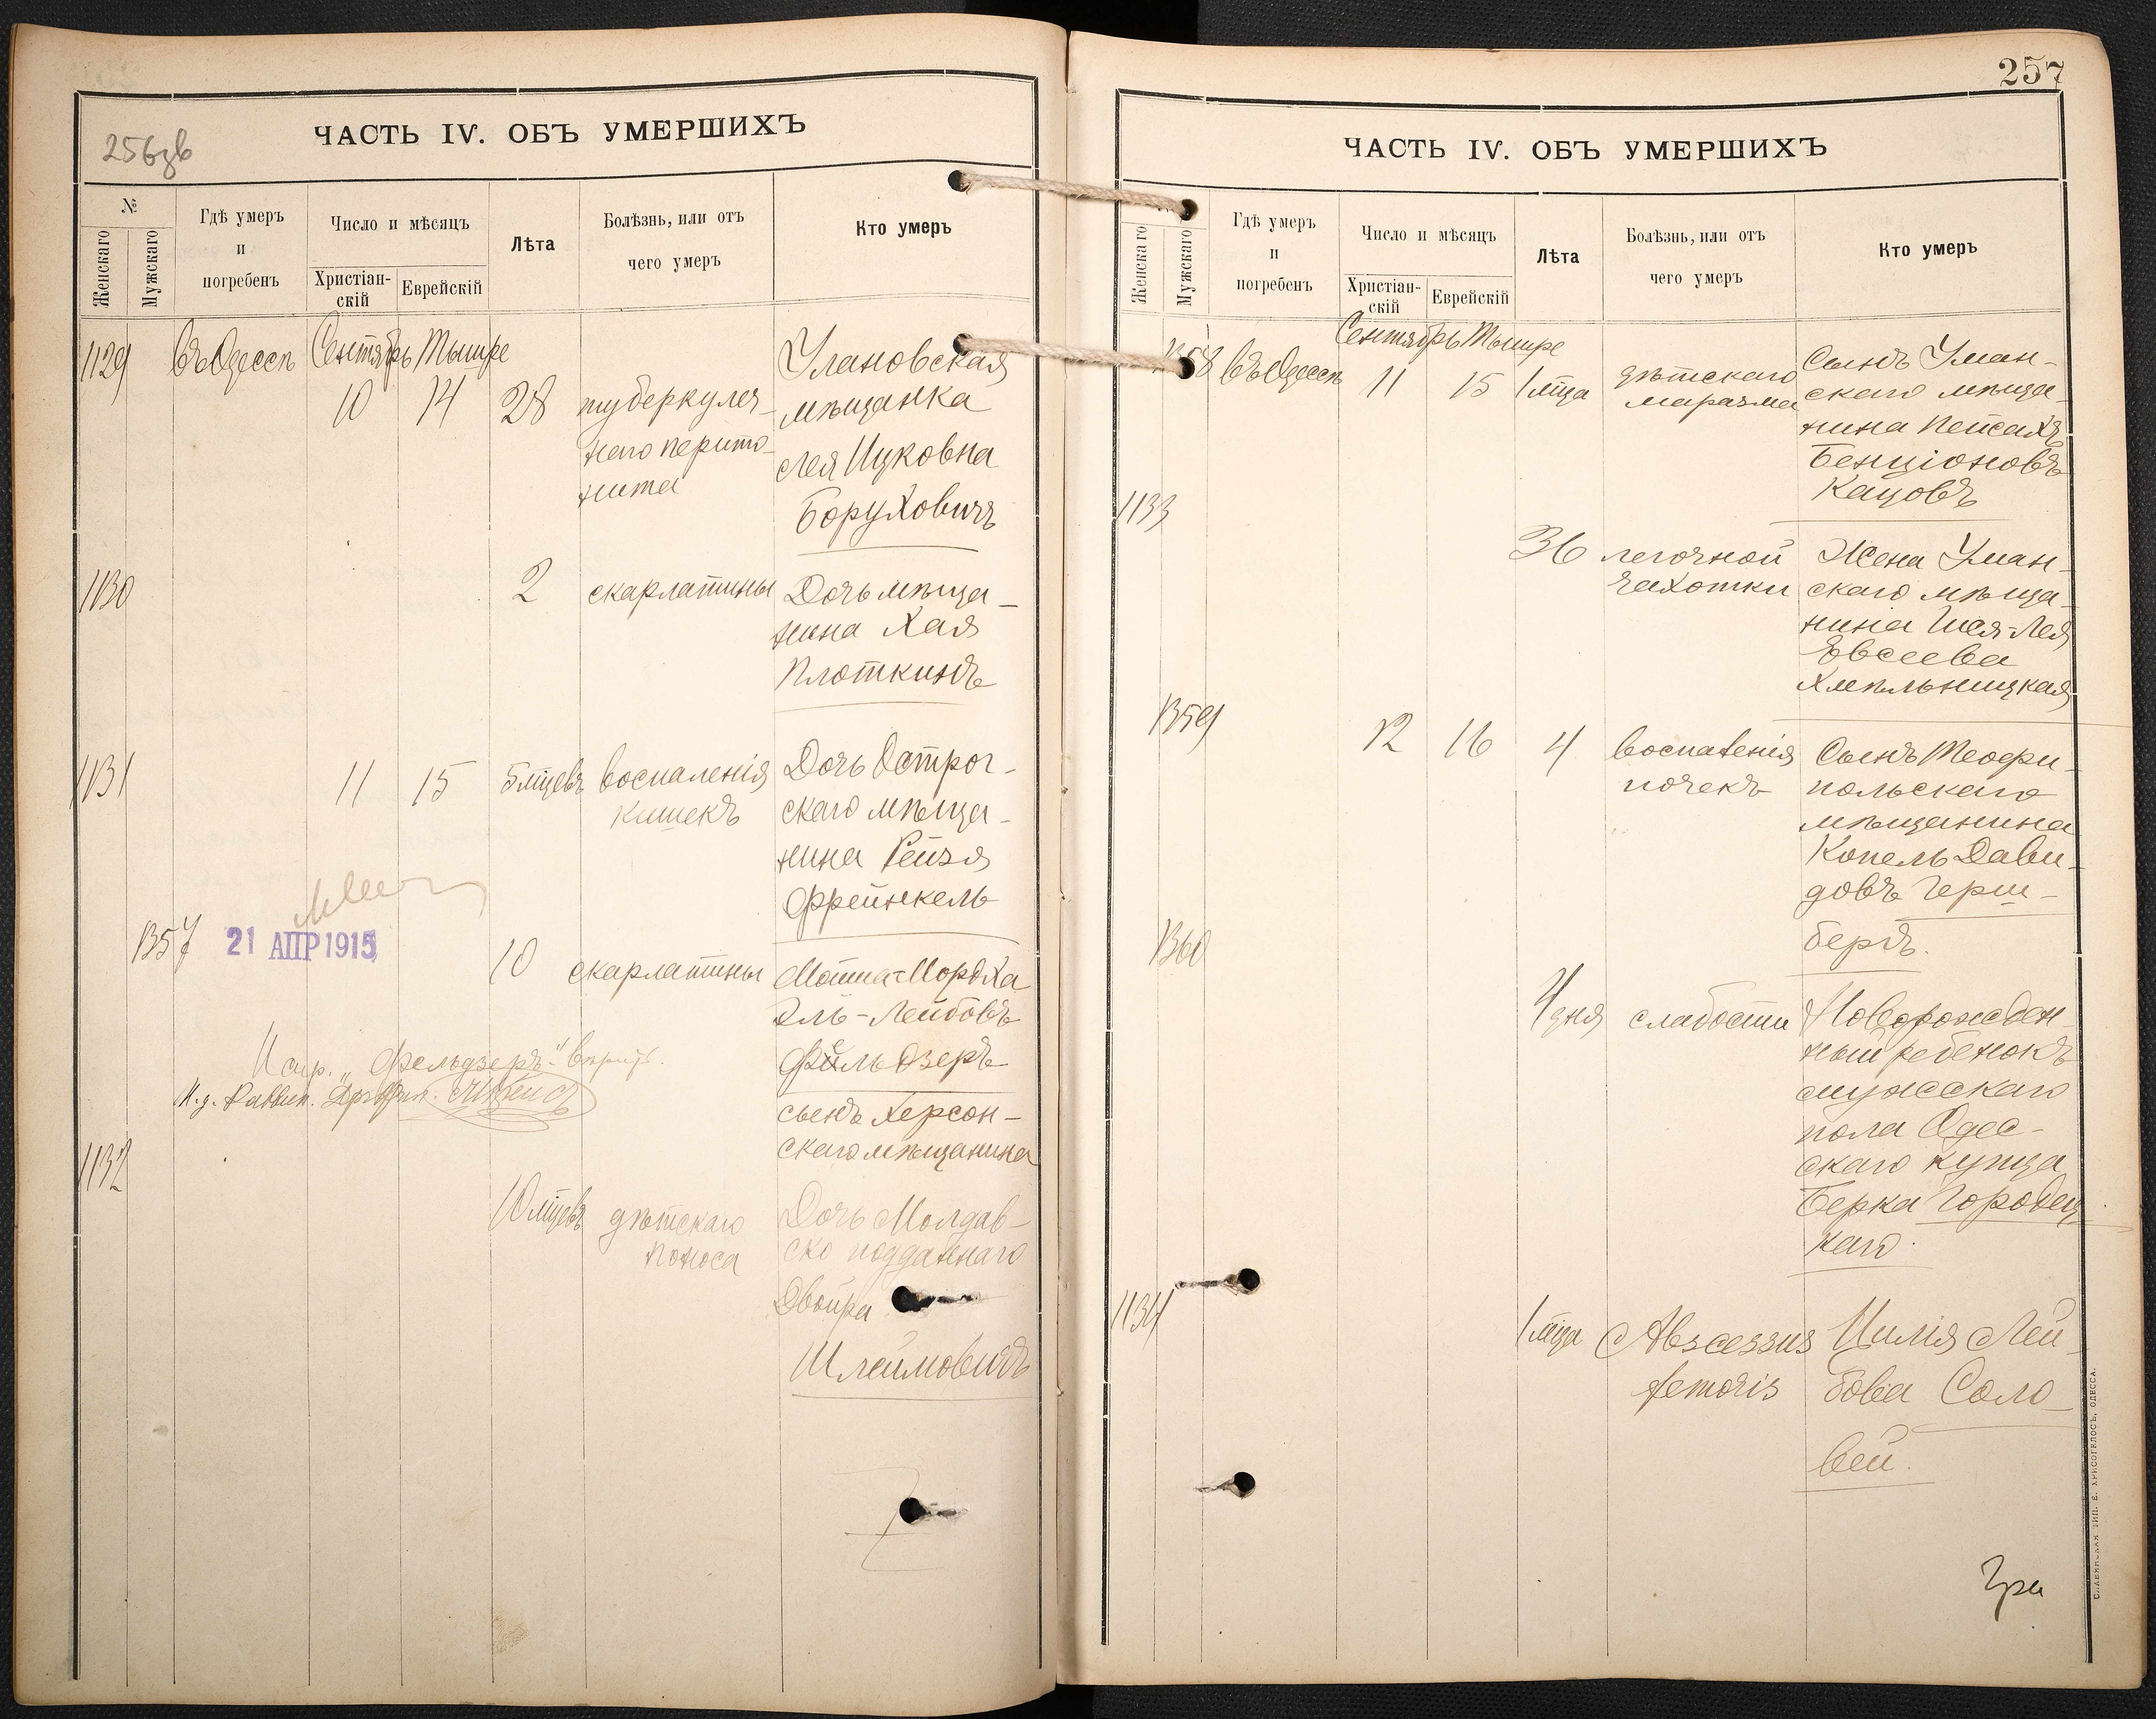 256зв
ЧАСТЬ IV. ОБЪ УМЕРШИХЪ
№
Женскаго
Мужскаго
Гдѣ умеръ
и
погребенъ
Число и мѣсяцъ
Христіан-
скій
Еврейскій
Лѣта
Болѣзнь, или отъ
чего умеръ
Кто умеръ
1129 въ Одессѣ Сентябрь Тышре
10 14 28
туберкулез-
наго перито-
нита
Улановская
мѣщанка
Лея Ицковна
Боруховичъ
1130 2 скарлатины
Дочь мѣща-
нина Хая
Плоткинъ
1131 11 15 5 мцевъ воспаленія
кишекъ
Дочь Острог-
скаго мѣща-
нина Рейзя
Френкель
1357 21 АПР 1915
10 скарлатины
Мотя-Мордха
Эль-Лейбовъ
Фельдзеръ
сынъ Херсон-
скаго мѣщанина
Испр. „Фельдзеръ" вѣрить.
И.д. Раввин.
1132 10 мцевъ дѣтскаго
поноса
Дочь Молдав-
ско подданнаго
Двойра
Шлеймовичъ
257
ЧАСТЬ IV. ОБЪ УМЕРШИХЪ
Женскаго
Мужскаго
Гдѣ умеръ
и
погребенъ
Число и мѣсяцъ
Христіан-
скій
Еврейскій
Лѣта
Болѣзнь, или отъ
чего умеръ
Кто умеръ
1358 въ Одессѣ Сентябрь Тышре
11 15 1 мца
дѣтскаго
маразма
Сынъ Уман-
скаго мѣща-
нина Пейсахъ
Бенціоновъ
Кацовъ
1133 36 легочной
чахотки
Жена Уман-
скаго мѣща-
нина Шея-Лея
Евсеева
Хмѣльницкая
1359 12 16 4 воспаленія
почекъ
Сынъ Теофи-
польскаго
мѣщанина
Копель Дави-
довъ Герш-
бергъ.
1360 4 дня слабости
Новорожден-
ный ребенокъ
мужскаго
пола Одес-
скаго купца
Берка Городец-
каго.
1134 1 мца Abscessus
femoris
Цилія Лей-
бова Соло-
вей.
СЛАВЯНСКАЯ ТИП. Е. ХРИСОГЕЛОСЪ, ОДЕССА.